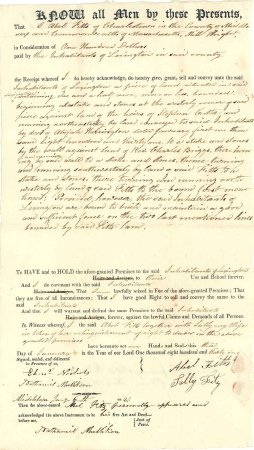 KNOW all Men by these Presents,
That I Abel Fitts of Charlestown in the County of Middle
sex and Commonwealth of Massachusetts,
in Consideration of One Hundred Dollars
paid by the Inhabitants of Lexington in said county
the Receipt whereof I do hereby acknowledge, do hereby give, grant, sell and convey unto the said
Inhabitants of Lexington a piece of land situated in said
Lexington, one and a half acre, more or less, bounded
beginning at stake and stones at the westerly corner of said
piece against land of the heirs of
running northeasterly by land
by deed of
eight hundred and thirty one, to a stake and stones
by the wall against land of Rev Charles Briggs, thence
by said wall to a stake and stones, thence turning
and running southwesterly by land of said Fitts to a
stake and stones, thence turning and running north
westerly by land of said Fitts to the bound first men
tioned. Provided however, the said Inhabitants of
Lexington are bound to build and maintain a good
and sufficient fence on the two last mentioned lines
bounded by said Fitts land.
To HAVE and to HOLD the afore-granted Premises to the said Inhabitants of Lexington
Heirs and Assigns, to their Use and Behoof forever.
And I do covenant with the said Inhabitants
Heirs and Assigns, That I am lawfully seized in Fee of the afore-granted Premises; That
they are free of all Incumbrances; That I have good Right to sell and convey the same to the
said Inhabitants
And that I will warrant and defend the same Premises to the said Inhabitants
Heirs and Assigns, forever, against the lawful Claims and Demands of all Persons.
In Witness whereof, I the said Abel Fitts together with Sally my Wife
in token of her relinquishment of right to dower in the above
granted premises
have hereunto set our Hands and Seals this
Day of January in the Year of our Lord One thousand eight hundred and thirty
Signed, sealed, and delivered
in Presence of us
Nichols
Nathaniel Mulliken
Abel Fitts
Sally Fitts
Middlesex
Then the above-named Abel Fitts personally appeared and
acknowledged the above Instrument to be his free Act and Deed—
before me, Just. of Peace.
Nathaniel Mulliken